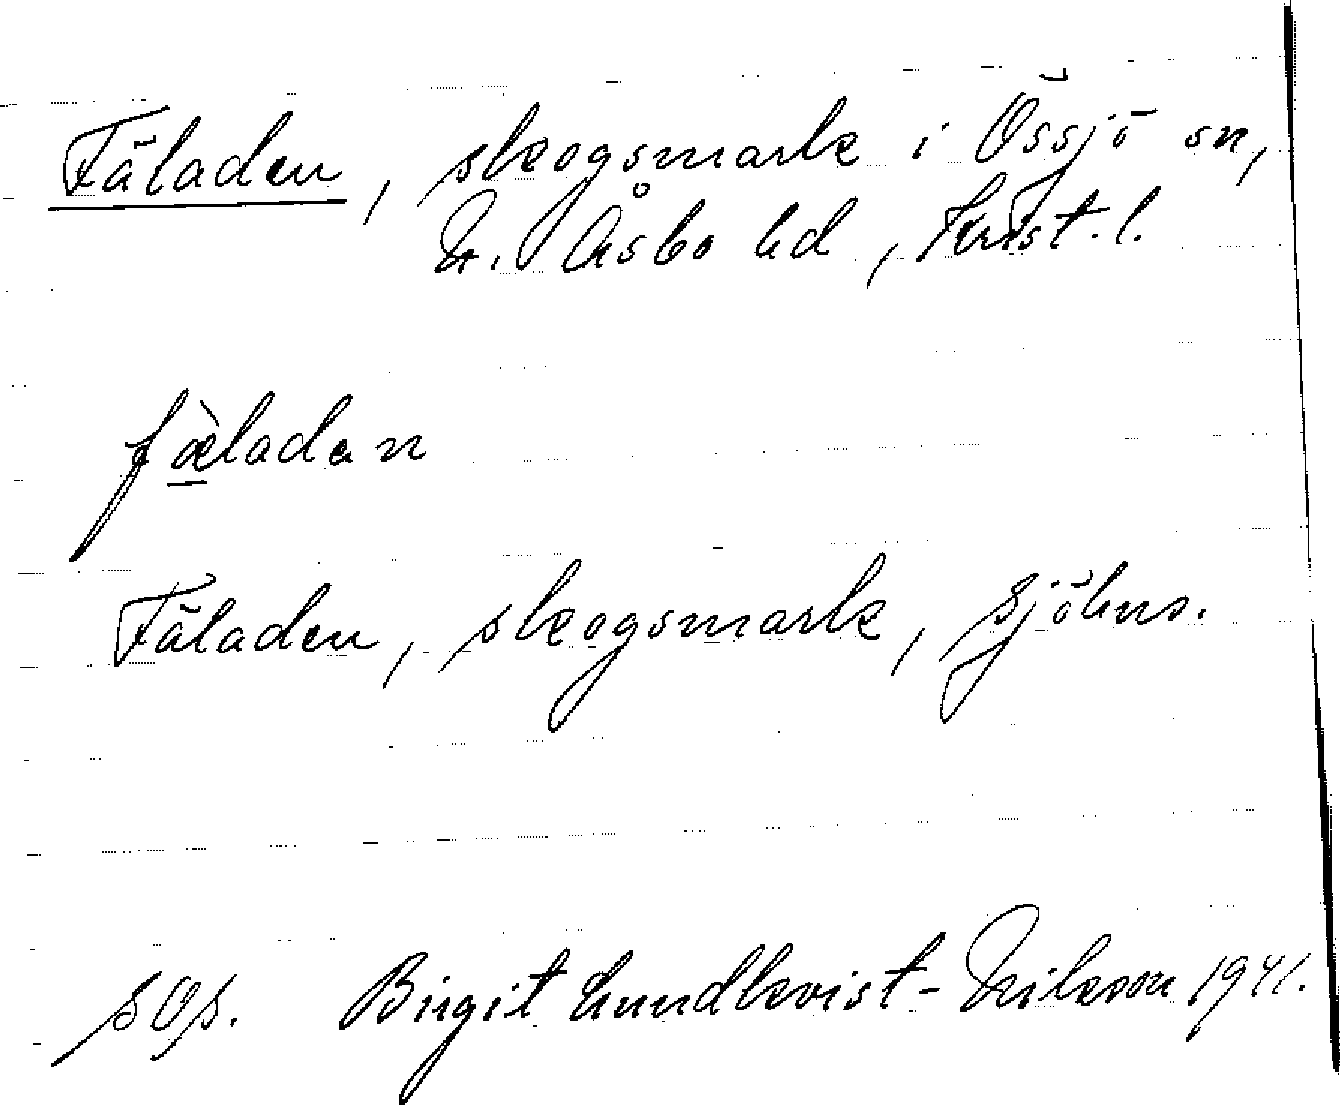 Fäladen, skogsmark i Össjö sn,
N. Åsbo hd, Krist. l.
fæ̀ladan
Fäladen, skogsmark, Sjöhus.
sOp. Birgit Lundkvist-Nilsson 1941.